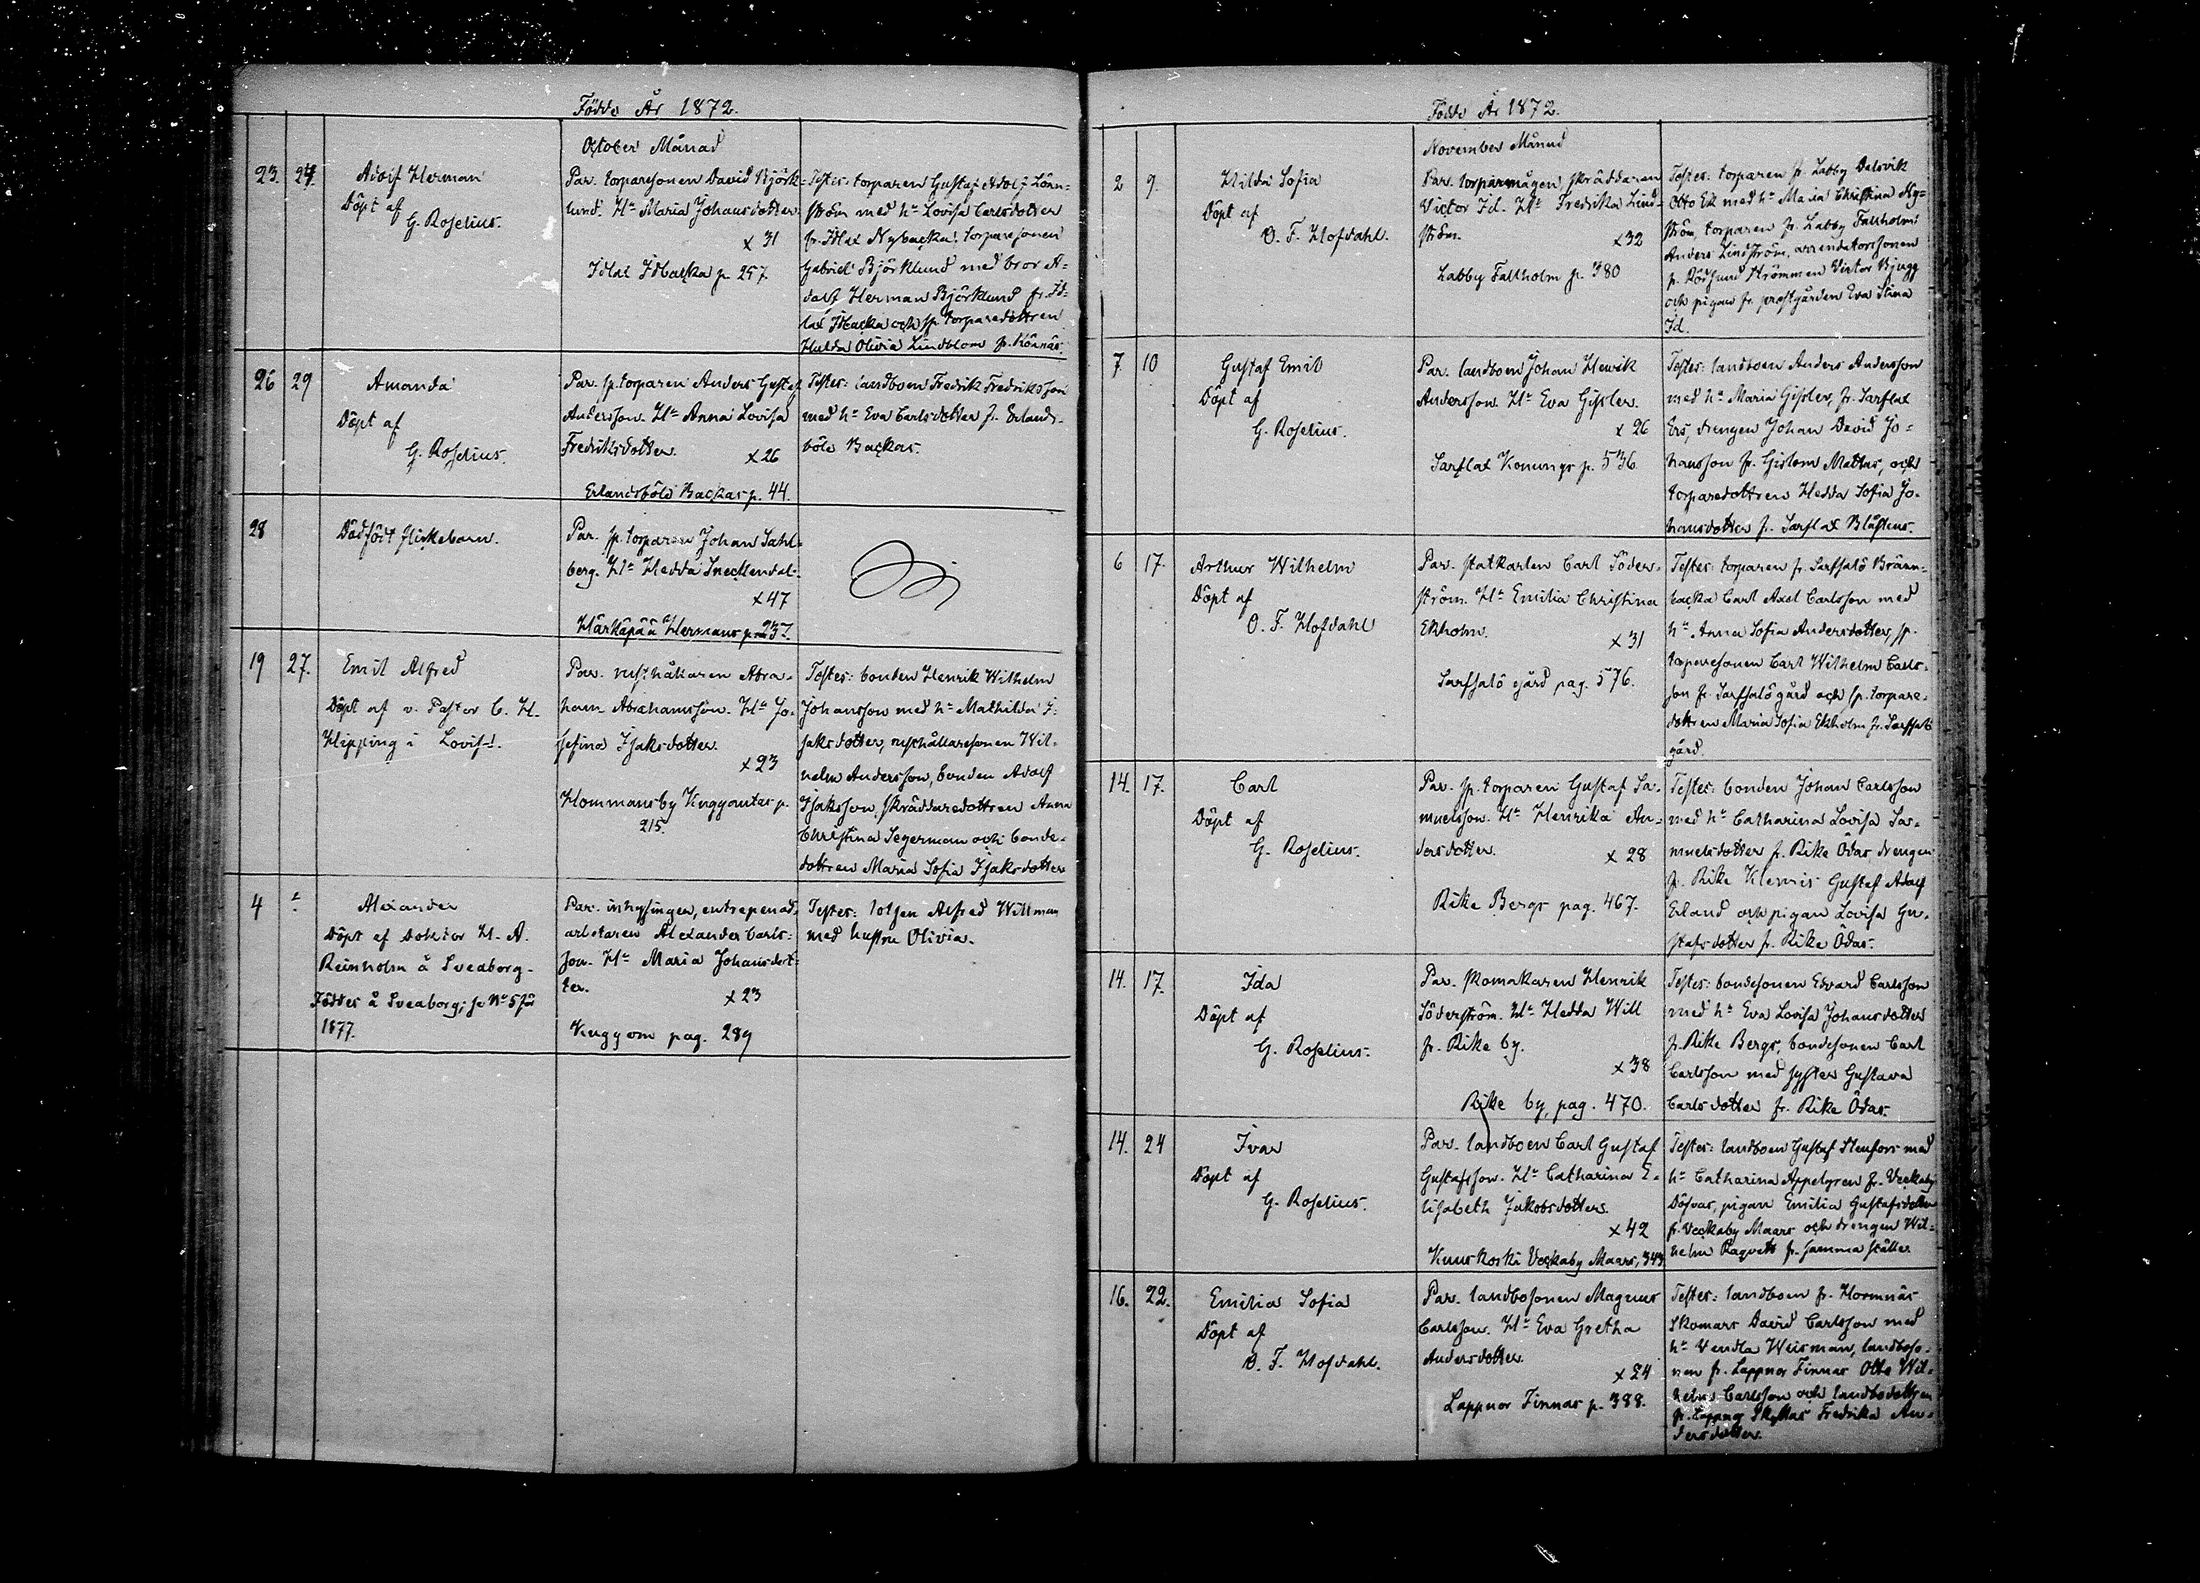 Födde År 1872.
October Månad
23. 24. Adolf Herman
Döpt af
G. Roselius.
Par. torparesonen David Björk-
lund. Hu Maria Johansdotter
x 31
Idlax Idbacka p. 257.
Testes: torparen Gustaf Adolf Lönn-
ström med hu Lovisa Carlsdotter
fr. Idlax Nybacka, torparesonen
Gabriel Björklund med bror A-
dolf Herman Björklund fr. Id-
lax Idbacka och sp. torparedottren
Hulda Olivia Lindblom fr. Könnäs.
26 29 Amanda
Döpt af
G. Roselius.
Par. sp. torparen Anders Gustaf
Andersson. Hu Anna Lovisa
Fredriksdotter.
x 26
Erlandsböle Backas p. 44.
Testes: landboen Fredrik Fredriksson
med hu Eva Carlsdotter fr. Erlands-
böle Backas.
28 Dödfödt flickebarn.
Par. sp. torparen Johan Sahl-
berg. Hu Hedda Sneckendal.
x 47
Härkäpää Hermans p. 237.
19 27. Emil Alfred
Döpt af v. Pastor C. H.
Klipping i Lovisa.
Par. rusthållaren Abra-
ham Abrahamsson. Hu Jo-
sefina Isaksdotter.
x 23
Hommansby Kuggomtas p.
215.
Testes: bonden Henrik Wilhelm
Johansson med hu Mathilda I-
saksdotter, rusthållaresonen Wil-
helm Andersson, bonden Adolf
Isaksson, skräddaredottren Anna
Christina Segerman och bonde-
dottren Maria Sofia Isaksdotter
4 Alexander
Döpt af Doktor H. A.
Reinholm å Sveaborg.
Föddes å Sveaborg; se No 5 för
1877.
Par. inhysingen, entrepenad-
arbetaren Alexander Carls-
son. Hu Maria Johansdot-
ter.
x 23
Kuggom pag. 289
Testes: lotsen Alfred Willman
med hustru Olivia.
Födde År 1872.
November Månad
2 9. Hilda Sofia
Döpt af
O. F. Hofdahl.
Par. torparmågen, skräddaren
Victor Id. Hu Fredrika Lind-
ström.
x 32
Labby Fallholm p. 380
Testes: torparen fr. Labby Dalsvik
Otto Ek med hu Maria Christina Ny-
ström, torparen fr. Labby Fallholm
Anders Lindström, arrendatorssonen
p. Rödsund Strömmen Victor Bjugg
och pigan fr. prestgården Eva Stina
Id.
7. 10 Gustaf Emil
Döpt af
G. Roselius.
Par. landboen Johan Henrik
Andersson. Hu Eva Gisler.
x 26
Sarflax Konungs p. 536.
Testes: landboen Anders Andersson
med hu Maria Gisler, fr. Sarflax
Ers, drengen Johan David Jo-
hansson fr. Gislom Mattas, och
torparedottren Hedda Sofia Jo-
hansdotter fr. Sarflax Blåsus.
6 17. Arthur Wilhelm
Döpt af
O. F. Hofdahl
Par. statkarlen Carl Söder-
ström. Hu Emilia Christina
Ekholm.
x 31
Sarfsalö gård pag. 576.
Testes: torparen fr. Sarfsalö Bränn-
backa Carl Axel Carlsson med
hu Anna Sofia Andersdotter, sp.
torparesonen Carl Wilhelm Carls-
son fr. Sarfsalö gård och sp. torpare-
dottren Maria Sofia Ekholm fr. Sarfsalö
gård.
14. 17. Carl
Döpt af
G. Roselius.
Par. sp. torparen Gustaf Sa-
muelsson. Hu Henrika An-
dersdotter.
x 28
Rike Bergs pag. 467.
Testes: bonden Johan Carlsson
med hu Catharina Lovisa Sa-
muelsdotter fr. Rike Ödas, drengen
fr. Rike Klemis Gustaf Adolf
Erland och pigan Lovisa Gu-
stafsdotter fr. Rike Ödas.
14. 17. Ida
Döpt af
G. Roselius.
Par. skomakaren Henrik
Söderström. Hu Hedda Will
fr. Rike by.
x 38
Rike by, pag. 470.
Testes: bondesonen Edvard Carlsson
med hu Eva Lovisa Johansdotter
fr. Rike Bergs, bondesonen Carl
Carlsson med syster Gustava
Carlsdotter fr. Rike Ödas.
14. 24 Ivar
Döpt af
G. Roselius.
Par. landboen Carl Gustaf
Gustafsson. Hu Catharina E-
lisabeth Jakobsdotter.
x 42
Kuuskoski Veckaby Maars, 343
Testes: landboen Gustaf Stenfors med
hu Catharina Appelgren fr. Veckaby
Dösvas, pigan Emilia Gustafsdotter
fr. Veckaby Maars och drengen Wil-
helm Raqvett fr. samma ställe.
16. 22. Emilia Sofia
Döpt af
O. F. Hofdahl.
Par. landbosonen Magnus
Carlsson. Hu Eva Gretha
Andersdotter.
x 24
Lappnor Finnas p. 388.
Testes: landboen fr. Hormnäs
Skomars David Carlsson med
hu Vendla Weisman, landboso-
nen fr. Lappnor Finnas Otto Wil-
helm Carlsson och landbodottren
fr. Lappnor Skyttas Fredrika An-
dersdotter.